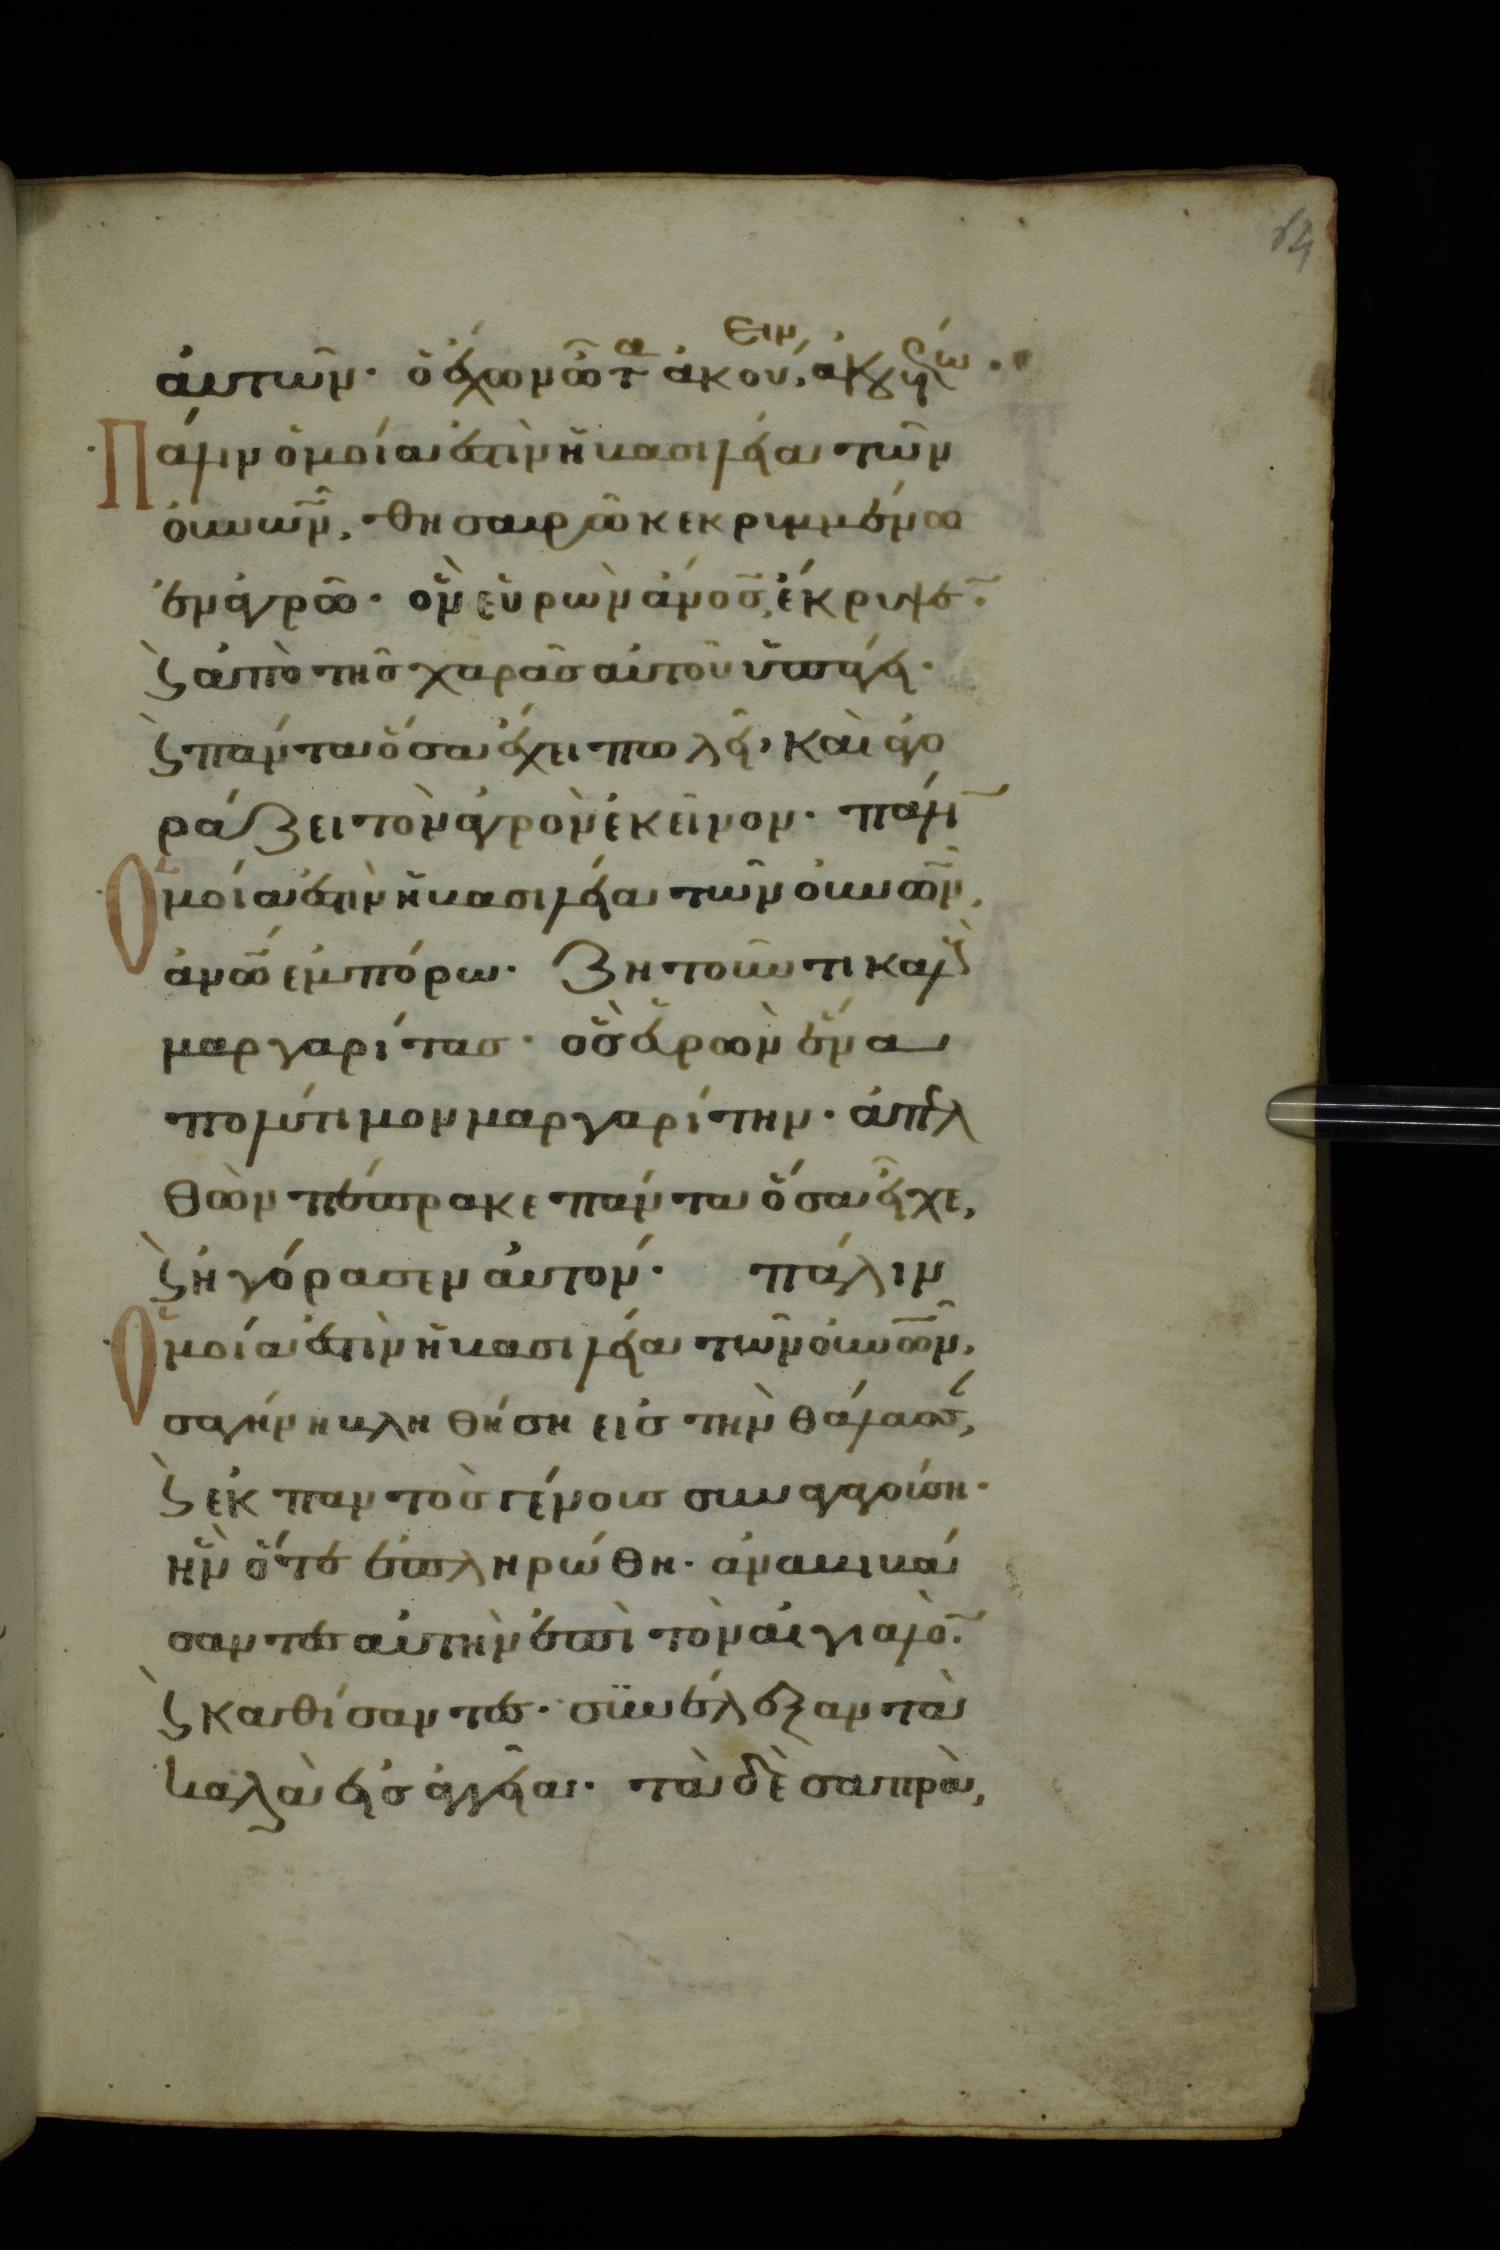 64
αὐτῶν· ὁ ἔχων ὦτα ἀκούειν, ἀκουέτω·
Πάλιν ὁμοία ἐστὶν ἡ βασιλεία τῶν
οὐνῶν, θησαυρῶ κεκρυμμένω
ἐν ἀγρῶ· ὃν εὑρὼν ἄνος, ἔκρυψε̄·
ϗ ἀπὸ τῆς χαρᾶς αὐτοῦ ὑπάγει·
ϗ πάντα ὅσα ἔχει πωλεῖ, καὶ ἀγο
ράζει τὸν ἀγρὸν ἐκεῖνον· πάλῑ
Ὁμοία ἐστὶν ἡ βασιλεία τῶν οὐνῶν,
ἀνω ἐμπόρω· ζητοῦντι καλοὺς
μαργαρίτας· ὃς εὑρὼν ἕνα
πολύτιμον μαργαρίτην· ἀπελ
θὼν πέπρακε πάντα ὅσα εἶχε,
ϗ ἠγόρασεν αὐτόν· πάλιν
Ὁμοία ἐστὶν ἡ βασιλεία τῶν οὐνῶν,
σαγήνη βληθείση εἰς τὴν θάλασσαν,
ϗ ἐκ παντὸς γένους συναγαγούση·
ἣν ὅτε ἐπληρώθη· ἀναβιβά
σαντες αὐτὴν ἐπὶ τὸν αἰγιαλὸ̄·
ϗ καθίσαντες· συνέλεξαν τὰ
καλὰ εἰς ἀγγεῖα· τὰ δὲ σαπρὰ,